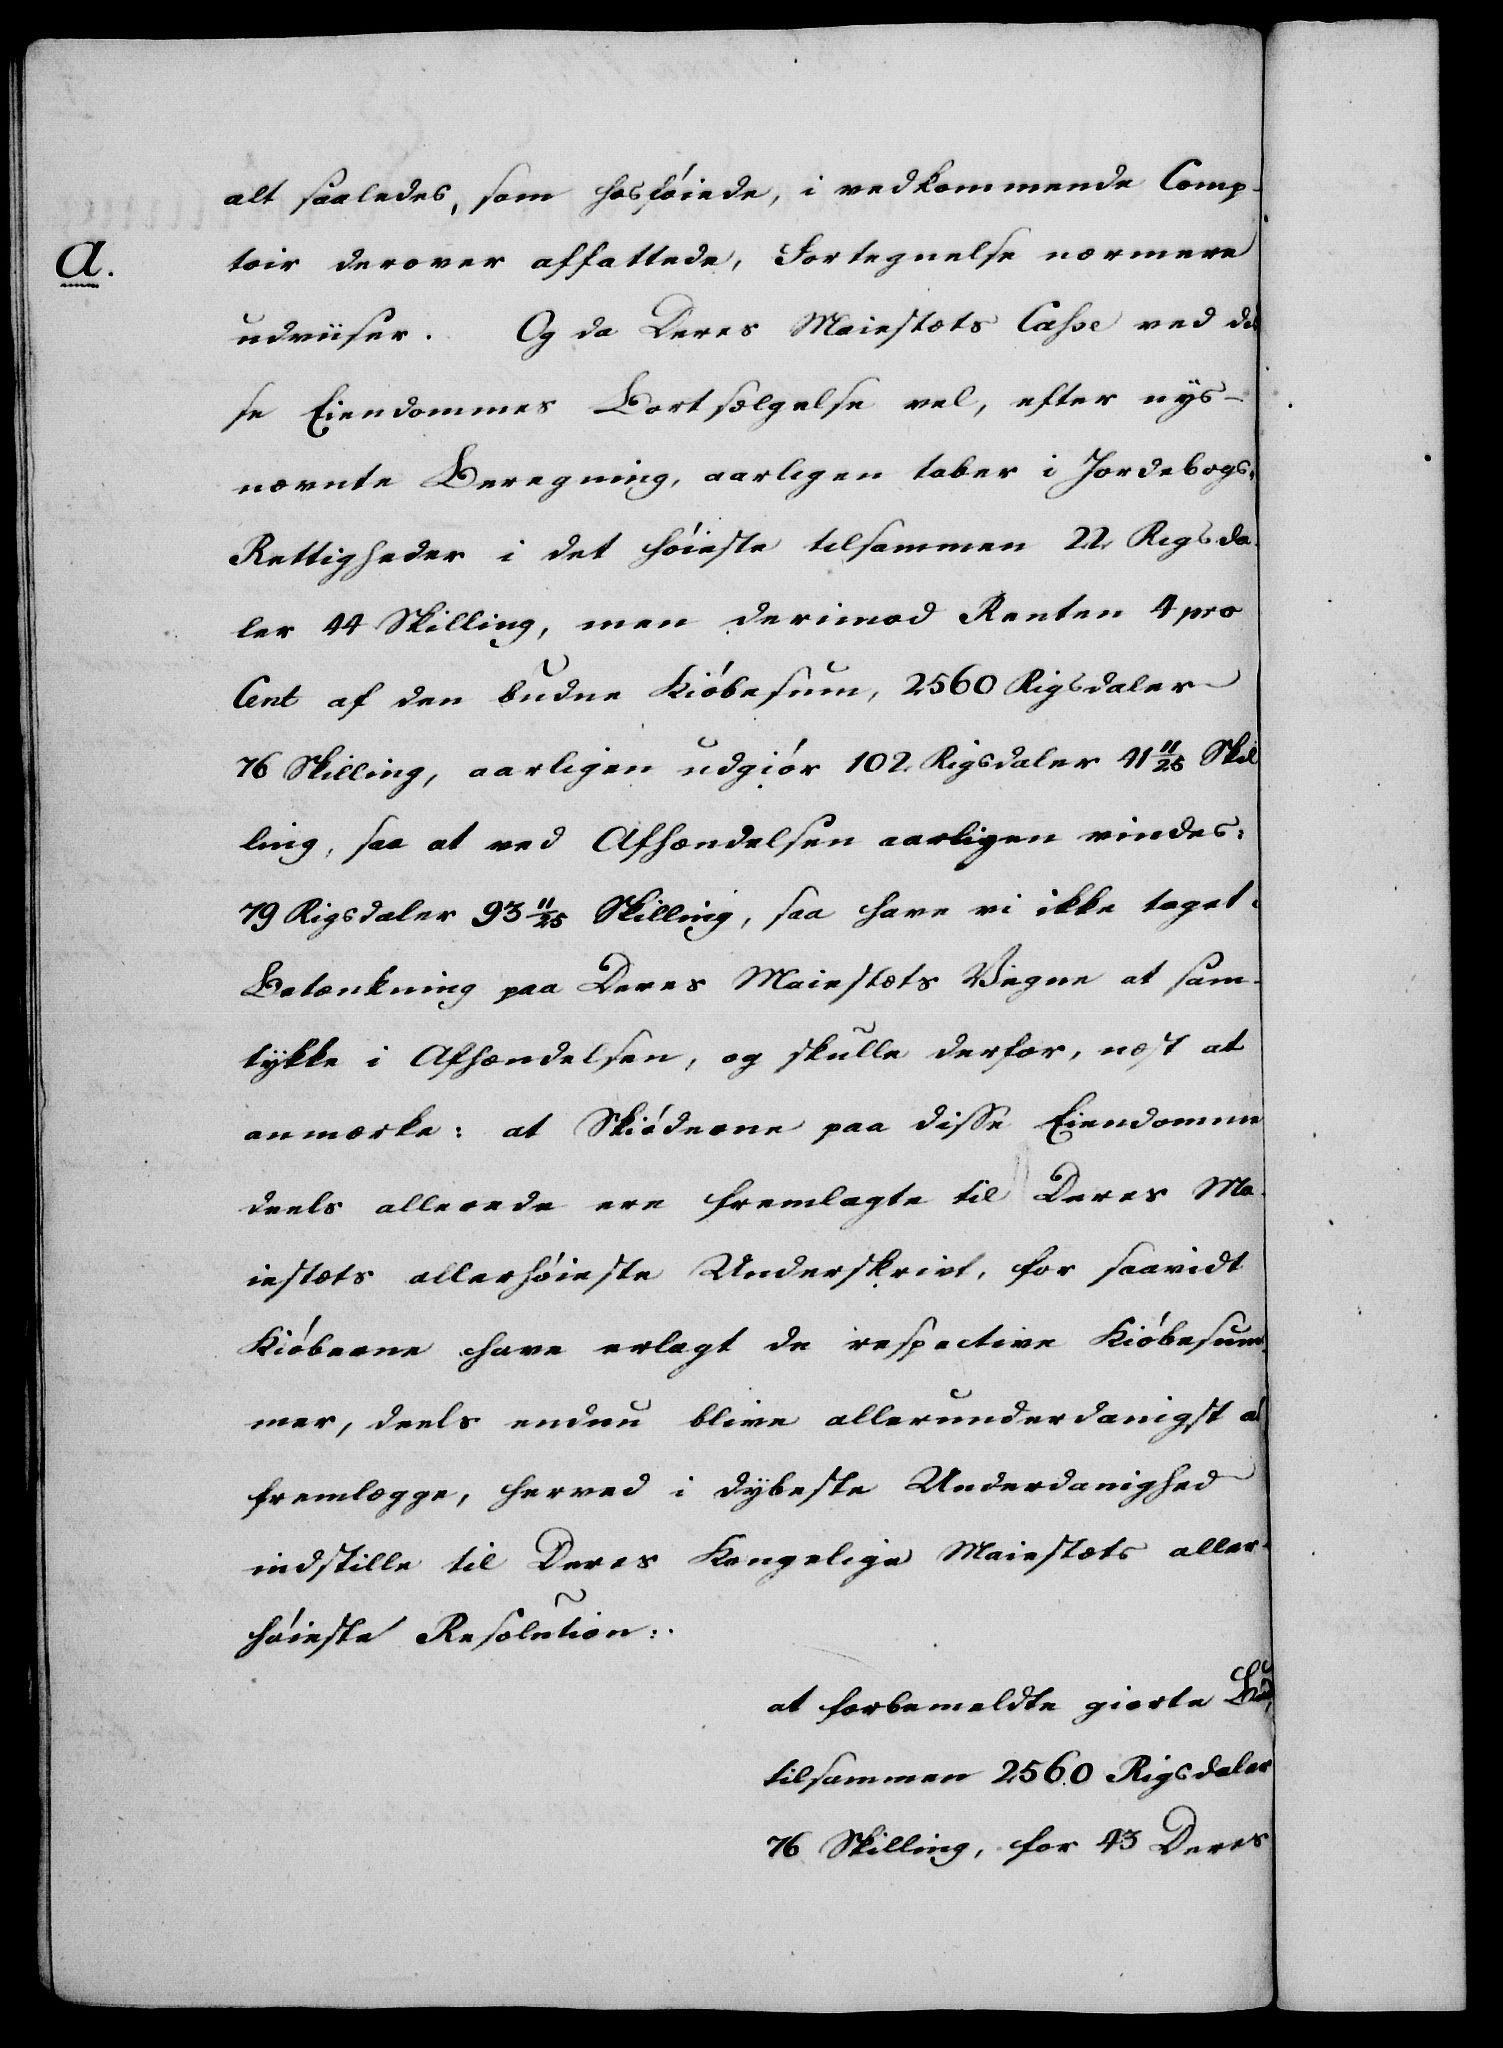 alt saaledes, som hosføiede, i vedkommende Comp-
a.
toir derover affattede, Fortegnelse nærmere
udviiser. Og da Deres Maiestæts Casse ved dis
se Eiendommes Bortsælgelse vel, efter nys-
nævnte Beregning, aarligen taber i Jordebogs-
Rettigheder i det høieste tilsammen 22 Rigsda-
ler 44 Skilling, men derimod Renten 4 pro
Cent af den budne Kiøbesum, 2560 Rigsdaler
76 Skilling, aarligen udgiør 102 Rigsdaler 41 11/25 Skil
ling, saa at ved Afhændelsen aarligen vindes:
79 Rigsdaler 93 11/25 Skilling, saa have vi ikke taget
Betænkning paa Deres Maiestæts Vegne at sam-
tykke i Afhændelsen, og skulle derfor, næst at
anmærke: at Skiøderne paa disse Eiendomme
deels allerede ere fremlagte til Deres Ma-
iestæts allerhøieste Underskrivt, for saavidt
Kiøberne have erlagt de respective Kiøbesum-
mer, deels endnu blive allerunderdanigst at
fremlægge, herved i dybeste Underdanighed
indstille til Deres Kongelige Maiestæts aller-
høieste Resolution:
at forbemeldte giorte Bud,
tilsammen 2560 Rigsdaler
76 Skilling, for 43 Deres